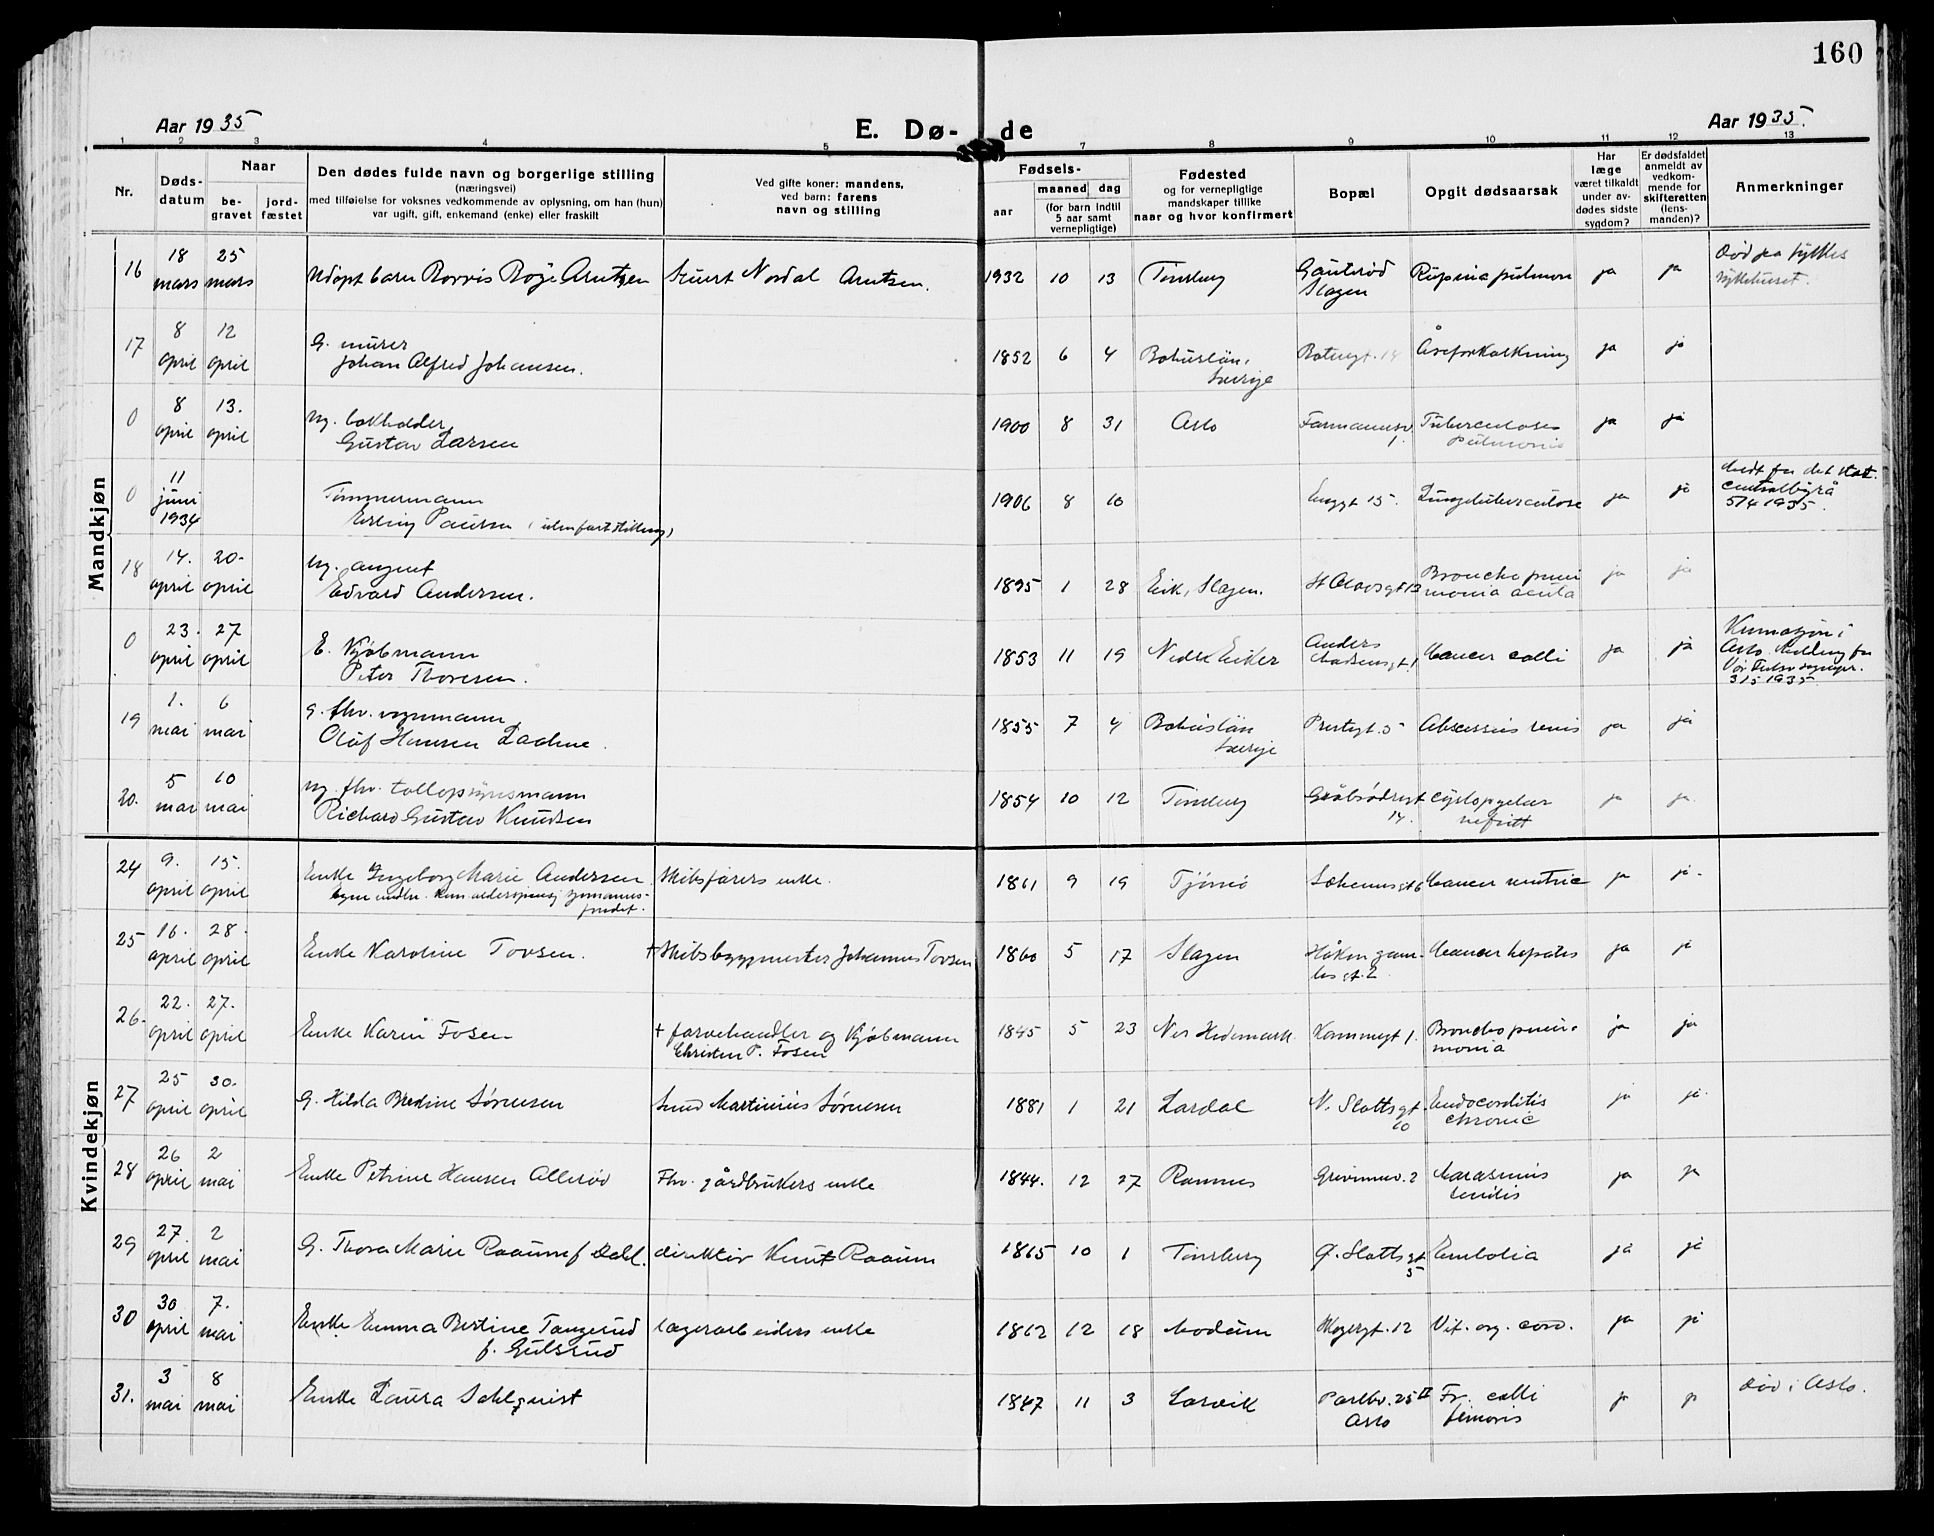 160
Aar 1935
E. Dø-de
Aar 1935.
1 2 3 4 5 7 8 9 10 11 12 13
Nr.
Døds-
datum
Naar
be-
gravet
jord-
fæstet
Den dødes fulde navn og borgerlige stilling
(næringsvei)
med tilføielse for voksnes vedkommende av oplysning, om han (hun)
var ugift, gift, enkemand (enke) eller fraskilt
Ved gifte koner: mandens,
ved barn: farens
navn og stilling
Fødsels-
aar
maaned dag
(for barn indtil
5 aar samt
vernepligtige)
Fødested
og for vernepligtige
mandskaper tillike
naar og hvor konfirmert
Bopæl
Opgit dødsaarsak
Har
læge
været tilkaldt
under av-
dødes sidste
sygdom?
Er dødsfaldet
anmeldt av
vedkom-
mende for
skifteretten
(lens-
manden)?
Anmerkninger
Mandkjøn
16 18 mars 25 mars Adopt barn Borris Boje Arntzen Sivert Nordal Arntsen. 1932 10 13 Tønsberg Gauterød Slagen ja ja Død paa fylkes sykehuset.
17 8 april 12 april G. murer
Johan Alfred Johansen. 1852 6 4 Bohuslän, Sverige Åreforkalkning ja ja
0 8 april 13. april Ug. bokholder
Gustav Larsen 1900 8 31 Oslo Farmannsv. 1. Tuberculosis pulmonis ja ja
0 11 juni 1934 Tømmermann
Erling Paulsen (uten fast stilling) 1906 8 10 Enggt 15. Lungetuberculose ja ja Meldt fra det stat. centralbyrå 5/4 1935.
18 14. april 20. april Ug. agent
Edvard Andersen. 1895 1 28 Eik, Slagen. St Olavsgt 13 Broncho pneumonia acuta ja ja
0 23. april 27 april E. Kjøbmann
Peter Thoresen. 1853 11 19 Nedre Eiker Anders Madsensgt 1 Cancer colli ja ja 3/5 1935.
19 1. mai 6 mai G. fhv. vognmann
Olaf Hansen 1855 7 4 Bohuslän Sverige Prestgt. 5 Abscessus renis ja ja
20. 5 mai 10 mai Ug. fhv. tollopsynsmann
Richard Gustav Knudsen 1854 10 12 Tønsberg Gråbrødregt 14. nefritt ja ja
Kvindekjøn
24 9. april 15. april Enke Ingeborg Marie Andersen Skibsførers enke. 1861 9 19 Tjømø ja ja.
25 16. april 28. april Enke Karoline Tovsen. † Skibsbyggmester Johannes Tovsen 1860 5 17 Slagen Håkon gamles gt. 2 Cancer hepatis ja ja
26. 22. april 27. april Enke Karin Fosen † farvehandler og Kjøbmann
Christen P. Fosen 1845 5 23 Nes Hedemark. Kammegt 1. Broncho pneumonia ja ja
27 25 april 30. april G. Hilda Bredine Sørensen Smed Martinius Sørensen 1881 1 21 Lardal N. Slottsgt. 10 Endocarditis chronic ja ja.
28 26 april 2 mai Enke Petrine Hansen Ollerød Fhv. gårdbrukers enke 1844. 12 27 Ramnes Grevinnev. 2 Marasmus senilis ja ja
29 27. april 2 mai G. Thora Marie Raaum f Dahl. direktør Knut Raaum 1865 10 1 Tønsberg Ø. Slottsgt 5 Embolia ja ja
30 30 april 7. mai Enke Emma Bertine Tangerud
f. Gulsrud lagerarbeiders enke 1862 12 18 Modum Mogegt. 12 Vit. org. cord. ja ja
31. 3 mai 8 mai Enke Laura Sahlquist 1847 11 3 Larvik Oslo Fr. colli femoris ja ja Død i Oslo.